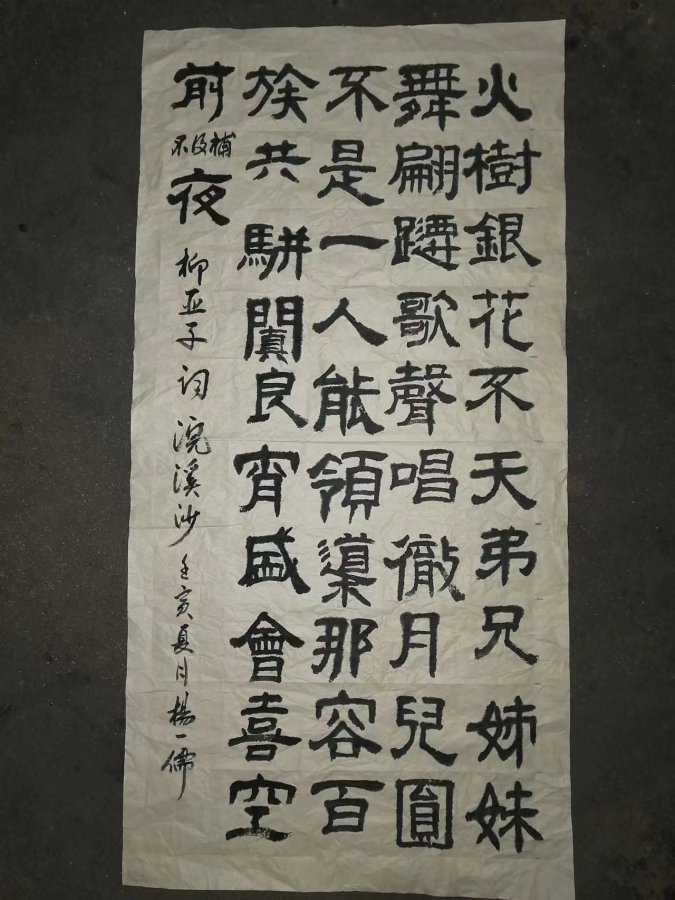 火樹銀花不天弟兄姊妹
舞翩躚歌聲唱徹月兒圓
不是一人能領導那容百
族共駢闐良宵盛會喜空
前補不夜柳亚子詞浣溪沙壬寅夏月楊一儒